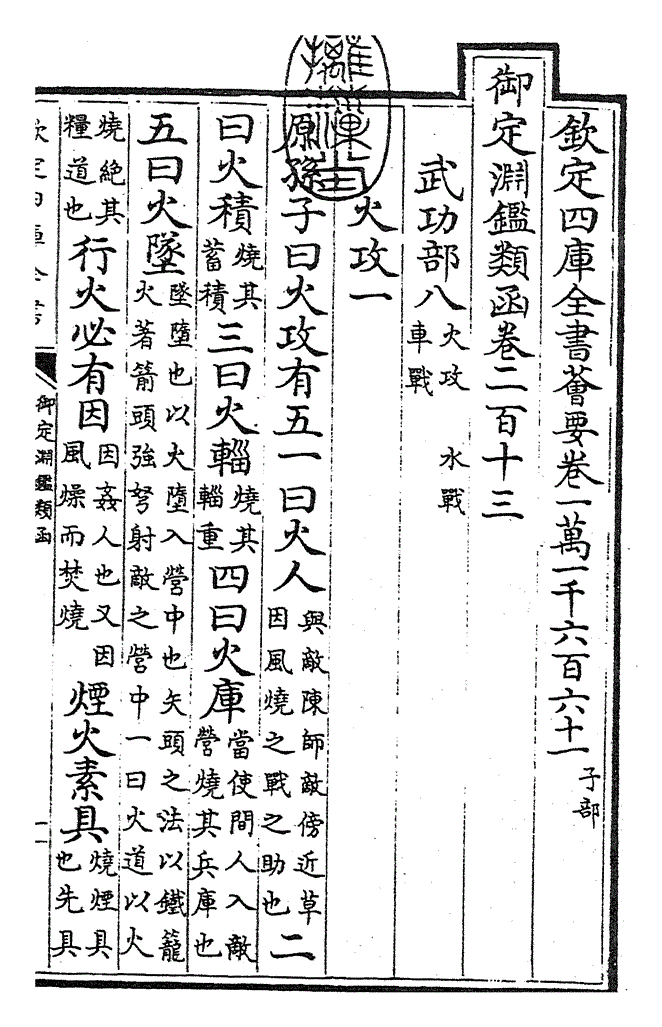 欽定四庫全書薈要卷一萬一千六百六十一子部
御定淵鑑類函卷二百十三
武功部八火攻 水戰車戰
火攻一
原孫子曰火攻有五一曰火人與敵陳師敵傍近草因風燒之戰之助也二
曰火積燒其蓄積三曰火輜燒其輜重四曰火庫當使間人入敵營燒其兵庫也
五曰火墜墜墮也以火墮入營中也矢頭之法以鐵籠火著箭頭強弩射敵之營中一曰火道以火
燒絕其糧道也行火必有因因姦人也又因風燥而焚燒煙火素具燒煙具也先具
欽定四庫全書
御定淵鑑類函
一